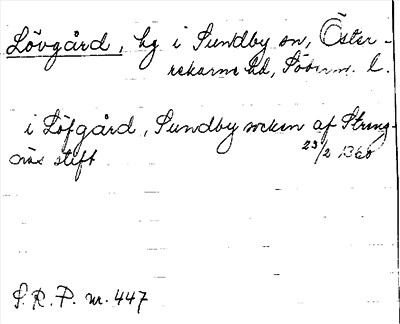 Lövgård, hg i Sundby sn, Öster-
rekarne hd, Söderm. l.
i Löfgård, Sundby socken af Streng-
näs stift 23/2 1360
S.R.P. nr. 447